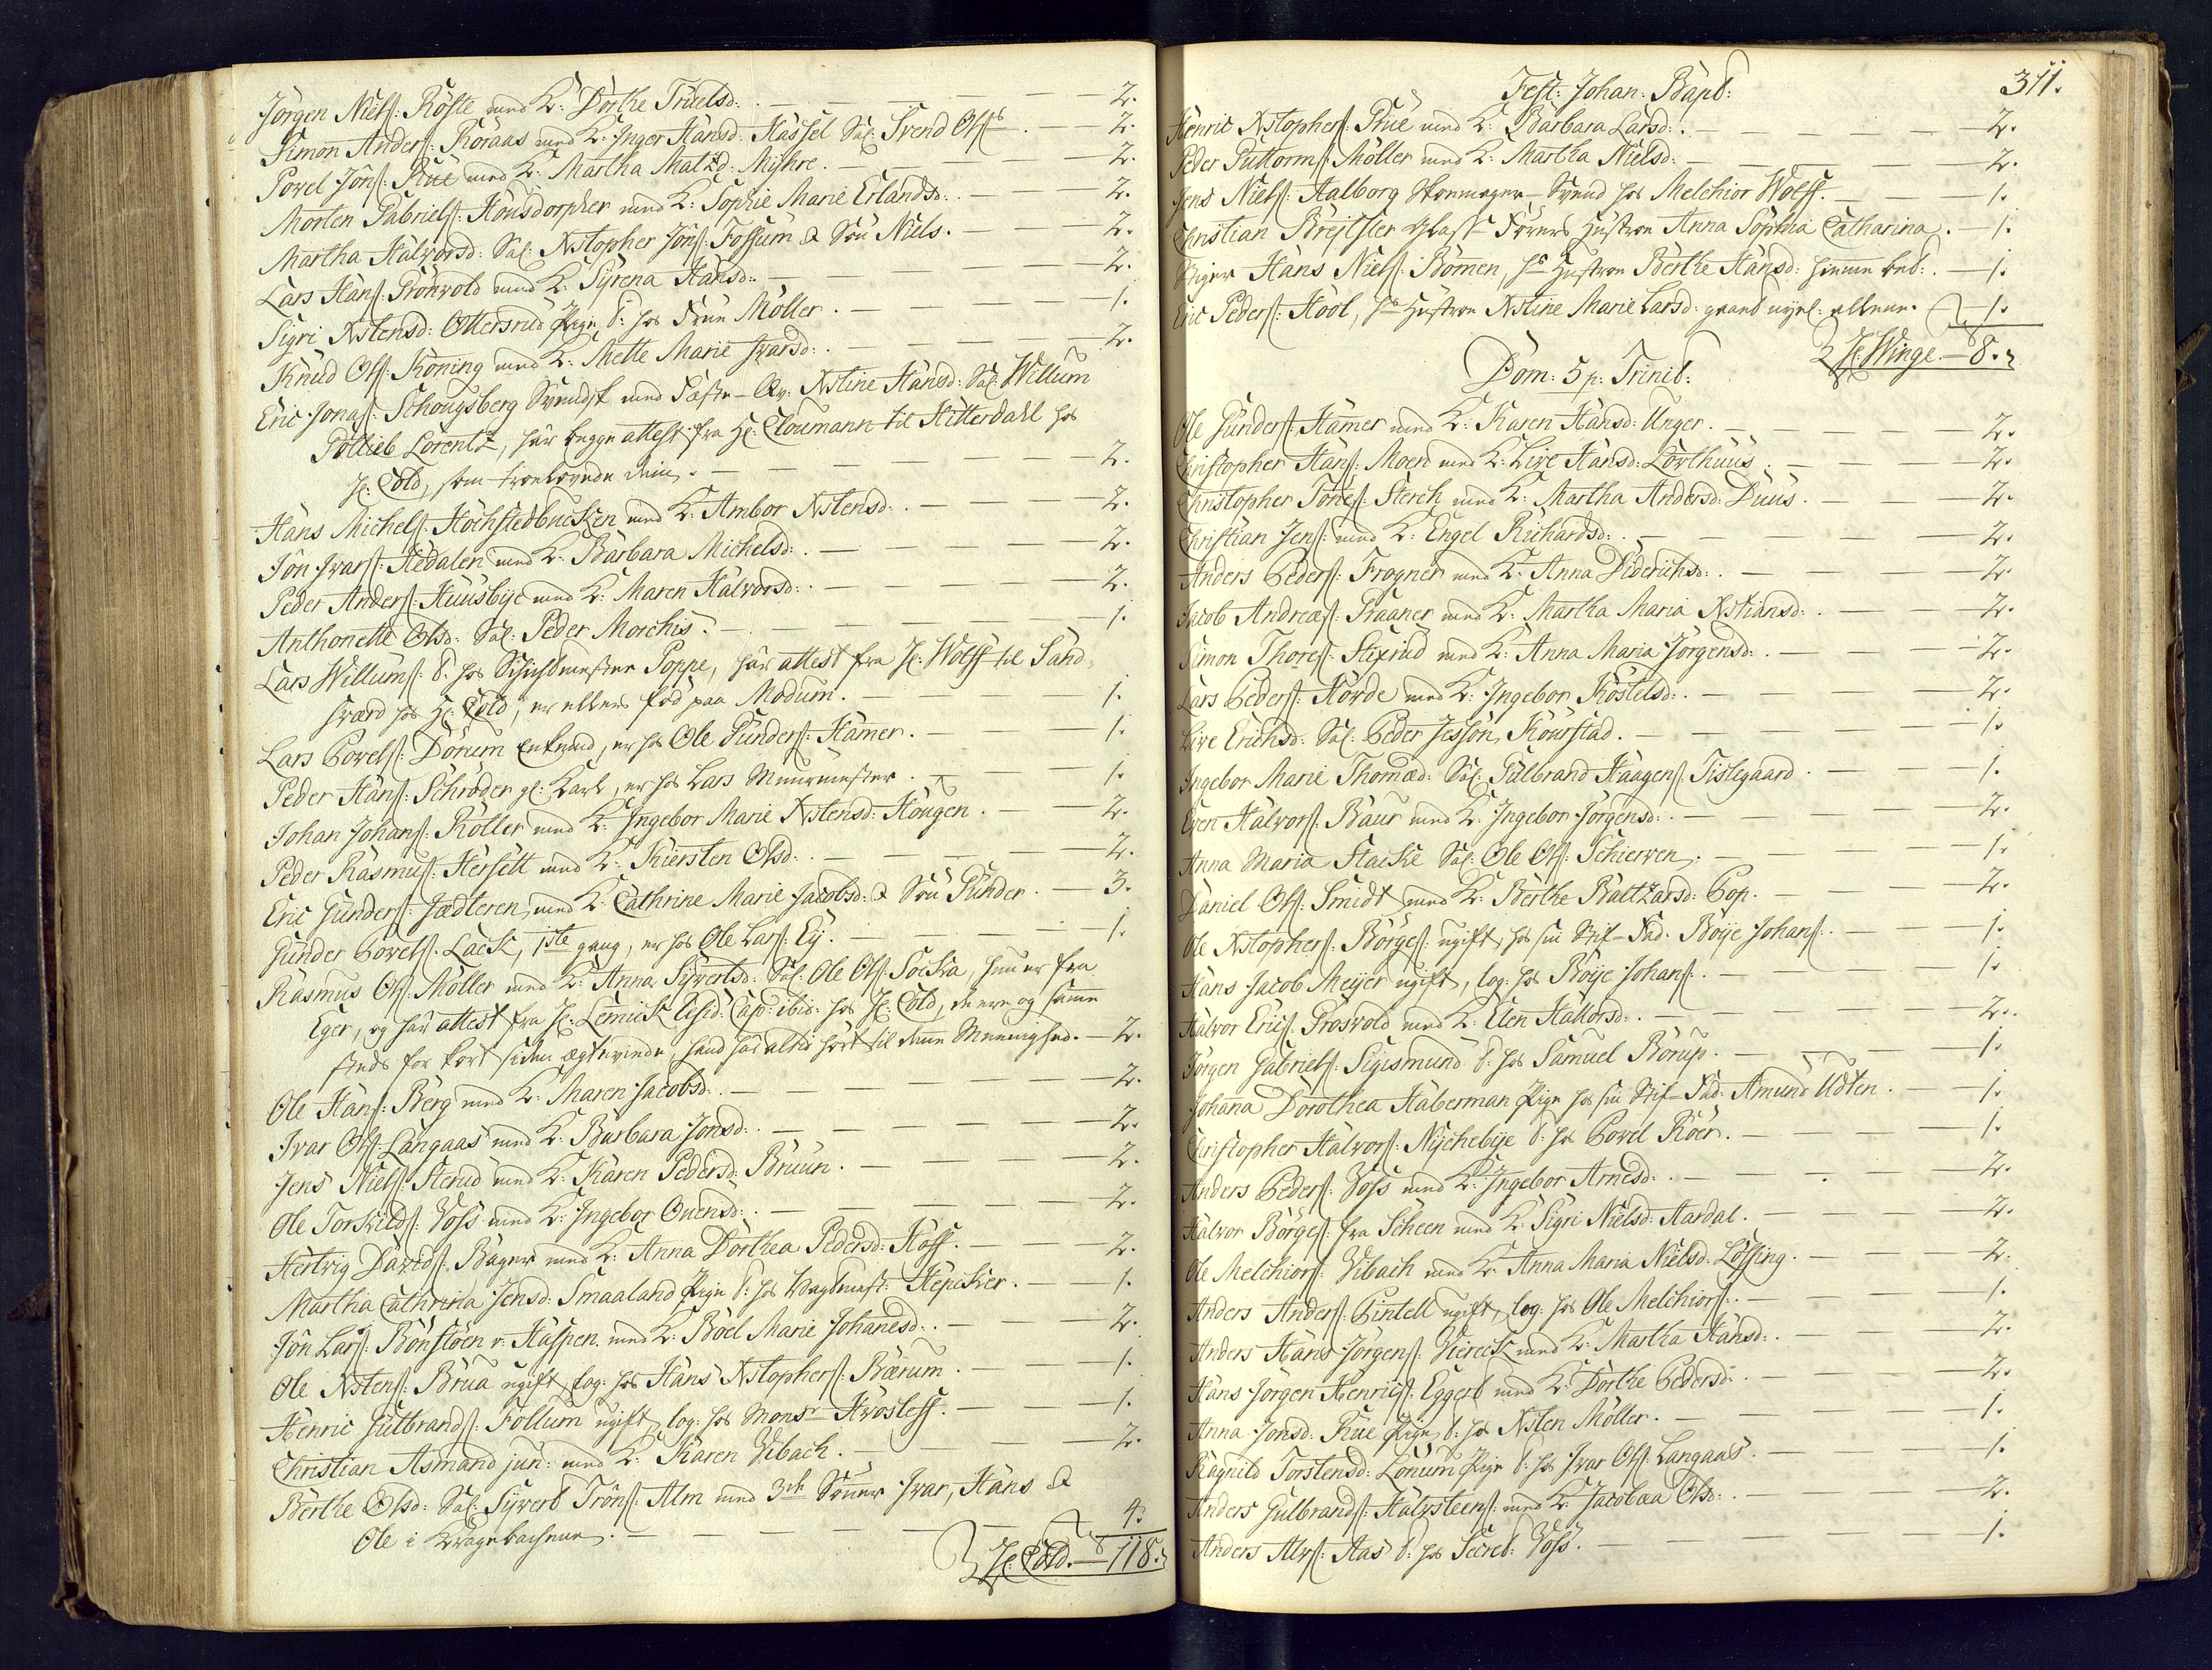 Jörgen Niels: Röste med K: Dorthe Truelsd: . — 2.
Simon Anders: Roraas med K: Inger Hansd: Hassel Sal: Svend Ols: . 2.
Povel Jöns: Rue med K: Martha Matzd: Myhre. — 2.
Morten Gabriels: Honsdorpher med K: Sophie Marie Erlandsd: . — 2.
Martha Halvorsd: Sal: Xstopher Jöns: Fossum & Sön Niels. — 2.
Lars Hans: Grönvold med K: Syrena Hansd: — 2.
Sigri Xstensd: Ottersrud Pige t: hos Frue Möller. — 1.
Knud Ols: Koning med K: Mette Marie Ivarsd: . — 2.
Eric Jonas: Schougsberg Svendsk med Fæste-Qv: Xstine Hansd: Sal: Willum
Gottlieb Lorentz, har begge attest fra Hr: Cloumann til Hitterdahl hos
Hr: Cold, som trolovede dem. — 2.
Hans Michels: Hochstedbucken med K: Ambor Xstensd: . — 2.
Jön Ivars: Hedalen med K: Barbara Michelsd: . — 2.
Peder Anders: Huusbye med K: Maren Halvorsd: . — 2.
Anthonette Olsd: Sal: Peder Morchis. — 1.
Lars Willums: t: hos Schichtmester Poppe, har attest fra Hr: Wolff til Sand-
sværd hos Hr: Cold, er ellers föd paa Modum. — 1.
Lars Povels: Dorum Enkemd, er hos Ole Gunders: Hamer. — 1.
Peder Hans: Schröder gl: Karl, er hos Lars Muurmester. — 1.
Johan Johans: Röller med K: Ingebor Marie Xstensd: Hougen. — 2.
Peder Rasmus: Hersett med K: Kiersten Olsd: . — 2.
Eric Gunders: Jædteren, med K: Cathrine Marie Jacobsd: & Sön Gunder. — 3.
Gunder Povels: Lack, 1ste gang, er hos Ole Lars: Ey. — 1.
Rasmus Ols: Möller med K: Anna Syvertsd: Sal: Ole Ols: Socka, hun er fra
Eger, og har attest fra Hr: Lemick resid: Cap: ibid: hos Hr: Cold, de ere og samme
steds for kort siden ægteviede, hand har altid hört til denne Meenighed. — 2.
Ole Hans: Berg med K: Maren Jacobsd: . — 2.
Ivar Ols: Langaas med K: Barbara Jonsd: . — 2.
Jens Niels: Sterud med K: Karen Pedersd: Bruun. — 2.
Ole Torkilds: Voss med K: Ingebor Onensd: . — 2.
Hertvig Davids: Bager med K: Anna Dorthea Pedersd: Hoff. — 2.
Martha Cathrina Jensd: Smaaland Pige t: hos Vagtmest: Hepcker. — 1.
Jön Lars: Bönstöen v. Haspen. med K: Boel Marie Johanesd: . — 2.
Ole Xstens: Brua ugift, log: hos Hans Xstophers: Bærum. — 1.
Henric Gulbrands: Follum ugift, log: hos Monsr Hvosleff. — 1.
Christian Asmand jun: med K: Karen Vibach. — 2.
Berthe Olsd: Sal: Syvert Tröns: Alm med 3de Sönner Ivar, Hans &
Ole i Kragebachene. — 4.
Hr: Cold. — 118.
311.
Fest: Johan: Bapt:
Henric Xstophers: Rue med K: Barbara Larsd: . — 2.
Peder Guttorms: Möller med K: Martha Nielsd: — 2.
Jens Niels: Aalborg Skomager-Svend hos Melchior Wolff. — 1.
Christian Brejtster Glass-Förers Hustrue Anna Sophia Catharina. — 1.
Böjer Hans Niels: Bömen, hs Hustrue Berthe Hansd: hiemme bet: . — 1.
Eric Peders: Hool, hs Hustrue Xstine Marie Larsd: alleene. — 1.
Hr: Winge. — 8.
Dom: 5 p: Trinit:
Ole Gunders: Hamer med K: Karen Hansd: Unger. — 2.
Christopher Hans: Moen med K: Live Hansd: Lorthuus. — 2.
Christopher Tönes: Sterch med K: Martha Andersd: Duus. — 2.
Christian Jens: med K: Engel Richardsd: . — 2.
Anders Peders: Frogner med K: Anna Diderichsd: . — 2.
Jacob Andreæs: Graaner med K: Martha Maria Xstiansd: . — 2.
Simon Thores: Stixrud med K: Anna Maria Jörgensd: . — 2.
Lars Peders: Hörde med K: Ingebor Köstelsd: . — 2.
Live Erichsd: Sal: Peder Jessön Kourstad. — 1.
Ingebor Marie Thomæd: Sal: Gulbrand Haagens: Tistegaard. — 1.
Even Halvors: Baur med K: Ingebor Jörgensd: . — 2.
Anna Maria Stacke Sal: Ole Ols: Schierven. — 1.
Daniel Ols: Smidt med K: Berthe Baltzarsd: Pop. — 2.
Ole Xstophers: Börges: ugift, hos sin Stif-Fad: Böye Johans: . — 1.
Hans Jacob Meyer ugift, log: hos Böye Johans: . — 1.
Halvor Erics: Grosvold med K: Elen Hallorsd: . — 2.
Jörgen Gabriels: Sigismund t: hos Samuel Borup. — 1.
Johana Dorothea Haberman Pige hos sin Stif-Fad: Amund Udten. — 1.
Christopher Halvors: Nychebye t: hos Povel Röer. — 1.
Anders Peders: Voss med K: Ingebor Arnesd: . — 2.
Halvor Börges: fra Scheen med K: Sigri Nielsd: Aardal. — 2.
Ole Melchiors: Vibach med K: Anna Maria Nielsd: Lössing. — 2.
Anders Anders: Pintell ugift, log: hos Ole Melchiors: . — 1.
Anders Hans Jörgens: Viereck med K: Martha Hansd: . — 2.
Hans Jörgen Henrics: Eggert med K: Dorthe Pedersd: . — 2.
Anna Jonsd: Rue Pige t: hos Xsten Möller. — 1.
Ragnild Torstensd: Lonum Pige t: hos Ivar Ols: Langaas. — 1.
Anders Gulbrands: Halvsteens: med K: Jacobæa Olsd: . — 2.
Anders Alvs: Aas t: hos Secret: Voss. — 1.